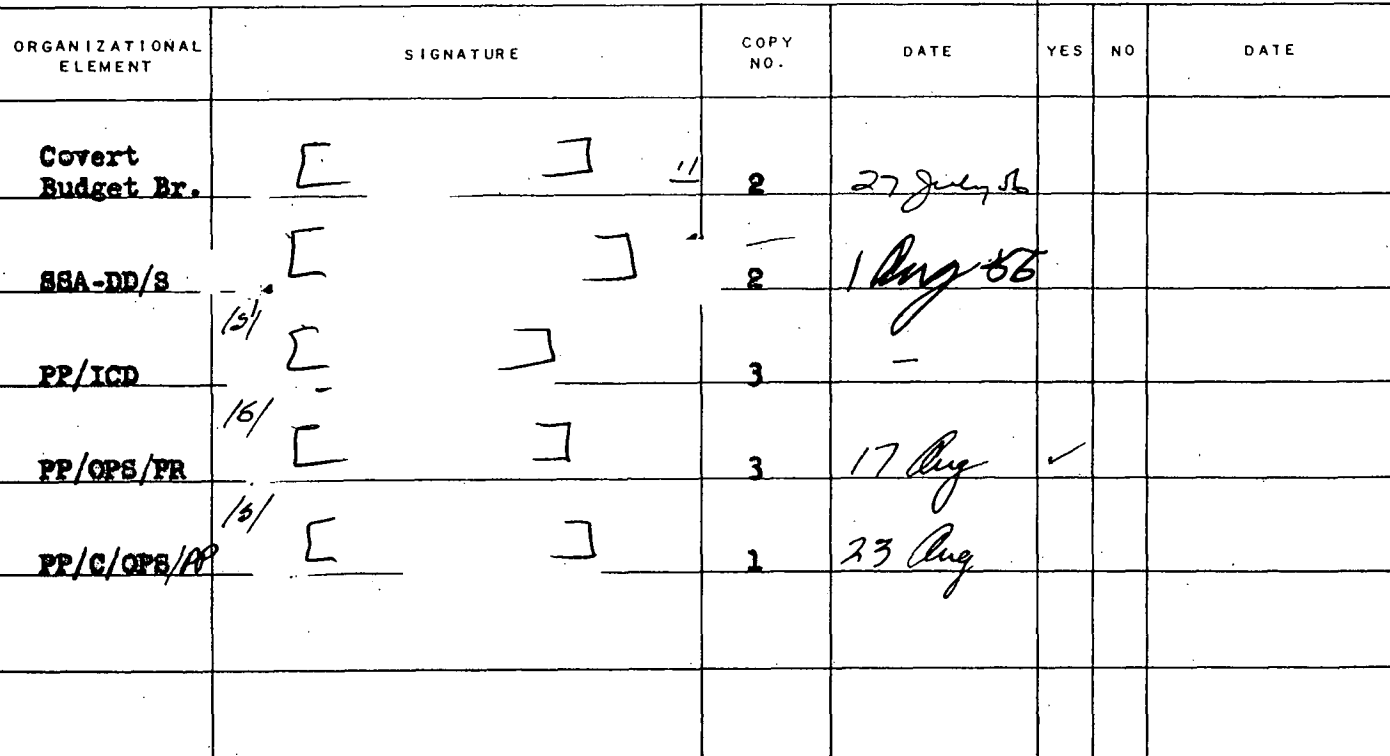 ORGANIZATIONAL ELEMENT SIGNATURE COPY NO. DATE YES NO DATE
Covert
Budget Br. 2 27 July 56
SSA-DD/S 2 1 Aug 56
/s/
PP/ICD 3 —
/s/
PP/OPS/PR 3 17 Aug ✓
/s/
PP/C/OPS/PP 1 23 Aug